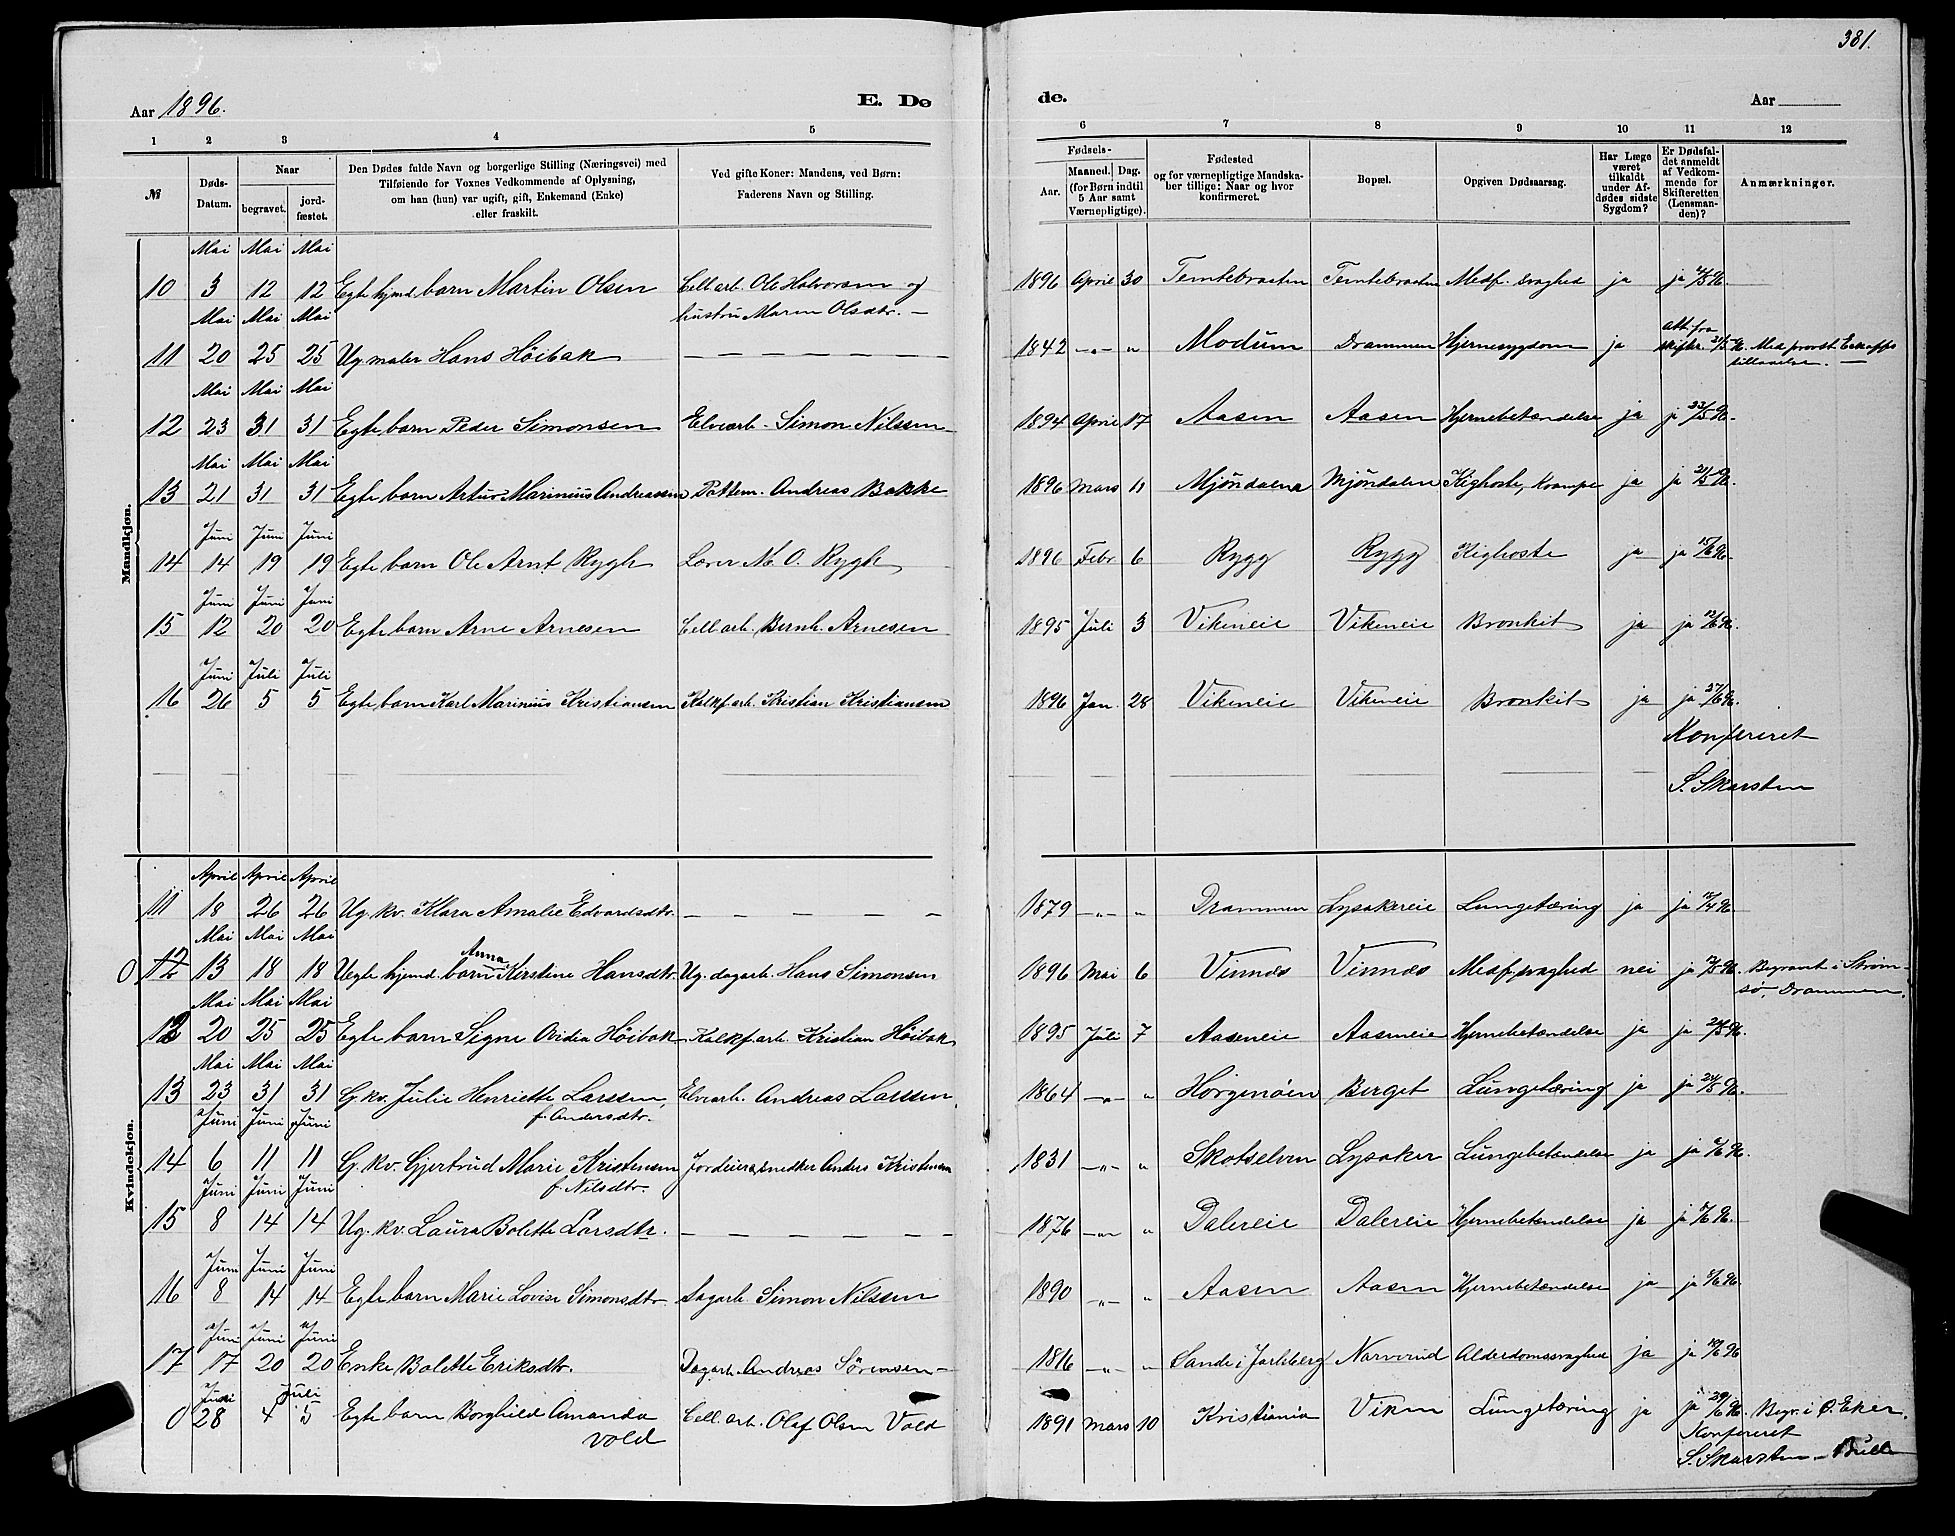 381.
Aar 1896. E. Dø
de. Aar
1 2 3 4 5
6 7 8 9 10 11 12
№ Døds-Datum. Naar begravet. jordfæstet. Den Dødes fulde Navn og borgerlige Stilling (Næringsvei) med Tilføiende for Voxnes Vedkommende af Oplysning, om han (hun) var ugift, gift, Enkemand (Enke) eller fraskilt. Ved gifte Koner: Mandens, ved Børn: Faderens Navn og Stilling.
Fødsels- Aar. Maaned. Dag. (for Børn indtil 5 Aar samt Værnepligtige). Fødested og for værnepligtige Mandskaber tillige: Naar og hvor konfirmeret. Bopæl. Opgiven Dødsaarsag. Har Læge været tilkaldt under Afdødes sidste Sygdom? Er Dødsfaldet anmeldt af Vedkommende for Skifteretten (Lensmanden)? Anmærkninger.
Mandkjøn.
Mai Mai Mai
10 3 12 12 Egte hjemd. barn Martin Olsen Cell.arb. Ole Halvorsen og 1896 April 30 Temtebraaten Temtebraaten Medf. svaghed ja ja 4/5 96.
Mai Mai Mai hustru Maren Olsdtr. —
11 20 25 25 Ug. maler Hans Höibak — — — — — — 1842 —„— „ Modum Drammen Hjernesygdom ja att. fra skiftr. 21/5 96. Med provst Eckhoffs tilladelse. —
Mai Mai Mai
12 23 31 31 Egte barn Peder Simonsen Elvearb. Simon Nilssen 1894 April 17 Aasen Aasen Hjernebetændelse ja ja 23/5 96.
Mai Mai Mai
13 21 31 31 Egte barn Artur Marinius Andreassen Pottem. Andreas Bakke 1896 Mars 11 Mjöndalen Mjöndalen Kighoste, Krampe ja ja 21/5 96.
Juni Juni Juni
14 14 19 19 Egte barn Ole Arnt Rygh Lærer N. O. Rygh 1896 Febr. 6 Rygg Rygg Kighoste ja ja 15/6 96.
Juni Juni Juni
15 12 20 20 Egte barn Arne Arnesen Cell.arb. Bernh. Arnesen 1895 Juli 3 Vikeneie Vikeneie Bronkit ja ja 12/6 96.
Juni Juli Juli
16 26 5 5 Egte barn Karl Marinius Kristiansen Kalkf.arb. Kristian Kristiansen 1896 Jan. 28 Vikeneie Vikeneie Bronkit ja ja 27/6 96.
Konfereret
S. Skarsten
Kvindekjøn.
April April April
11 18 26 26 Ug. kv. Klara Amalie Edvardsdtr. — — — — — 1879 —„— „ Drammen Lysakereie Lungetæring ja ja 18/4 96
Mai Mai Mai Anna
0 12 13 18 18 Uegte hjemd. barn Kerstine Hansdtr. Ug. dagarb. Hans Simonsen 1896 Mai 6 Vinnæs Vinnæs Medf. svaghed nei ja 14/5 96. Begravet i Strøm-
Mai Mai Mai sø, Drammen.
12 20 25 25 Egte barn Signe Ovidia Höibak Kalkf.arb. Kristian Höibak 1895 Juli 7 Aaseneie Aaseneie Hjernebetændelse ja ja 24/5 96.
Mai Mai Mai
13 23 31 31 G. kv. Julie Henriette Larssen, Elvearb. Andreas Larssen 1864 —„— „ Hörgenöien Berget Lungetæring ja ja 24/5 96.
Juni Juni Juni f. Andersdtr.
14 6 11 11 G. kv. Gjertrud Marie Kristensen Jordeier, snedker Anders Kristensen 1831 —„— „ Skotselven Lysaker Lungebetændelse ja ja 6/6 96.
Juni Juni Juni f. Nilsdtr.
15 8 14 14 Ug. kv. Laura Bolette Larsdtr. — — — — — — 1876 —„— „ Dalereie Dalereie Hjernebetændelse ja ja 8/6 96.
Juni Juni Juni
16 8 14 14 Egte barn Marie Lovise Simonsdtr. Sagarb. Simon Nilssen 1890 —„— „ Aasen Aasen Hjernebetændelse ja ja 8/6 96.
Juni Juni Juni
17 17 20 20 Enke Bolette Eriksdtr. Dagarb. Andreas Sörensen — 1816 —„— „ Sande i Jarlsberg Narverud Alderdomssvaghed ja ja 19/6 96
Juni Juli
0 28 4 5 Egte barn Borghild Amanda Vold Cell.arb. Olaf Olsen Vold 1891 Mars 10 Kristiania Viken Lungetæring ja ja 29/6 96. Begr. i Ö. Eker.
Konfereret
S. Skarsten Bull